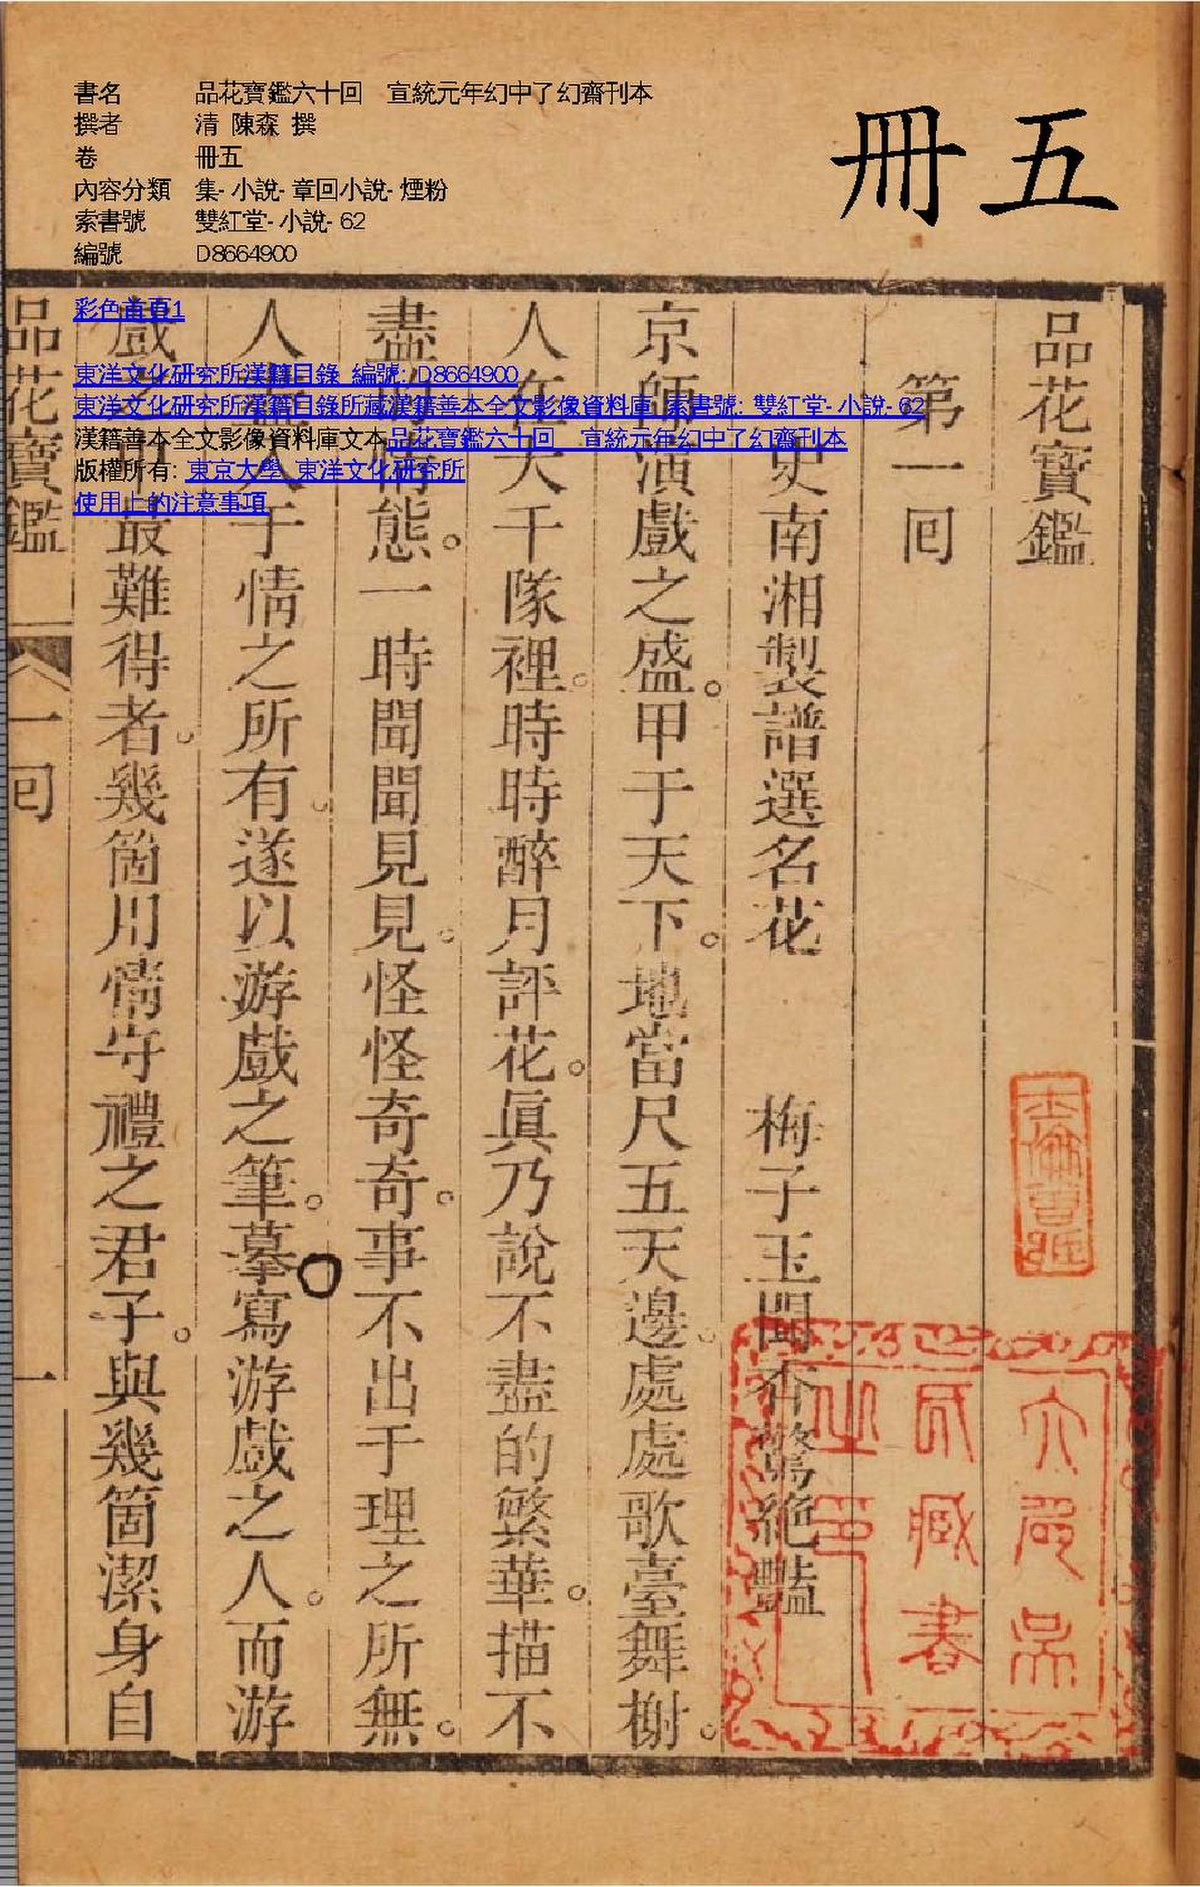 書名 品花寶鑑六十回 宣統元年幻中了幻齋刊本
撰者 清 陳森 撰
卷 冊五
內容分類 集-小說-章回小說-煙粉
索書號 雙紅堂-小說-62
編號 D8664900
冊五
彩色首頁1
東洋文化研究所漢籍目錄 編號: D8664900
東洋文化研究所漢籍目錄所藏漢籍善本全文影像資料庫 索書號: 雙紅堂-小說-62
漢籍善本全文影像資料庫文本品花寶鑑六十回 宣統元年幻中了幻齋刊本
版權所有: 東京大學 東洋文化研究所
使用上的注意事項
品花寶鑑
第一回
史南湘製譜選名花 梅子玉聞香驚絶豔
京師演戲之盛。甲于天下。地當尺五天邊。處處歌臺舞榭。
人在大千隊裡。時時醉月評花。眞乃說不盡的繁華。描不
盡的情態。一時聞聞見見。怪怪奇奇。事不出于理之所無。
人盡入于情之所有。遂以游戲之筆。摹寫游戲之人。而游
戲之中最難得者。幾箇用情守禮之君子。與幾箇潔身自
品花寶鑑 一回 一